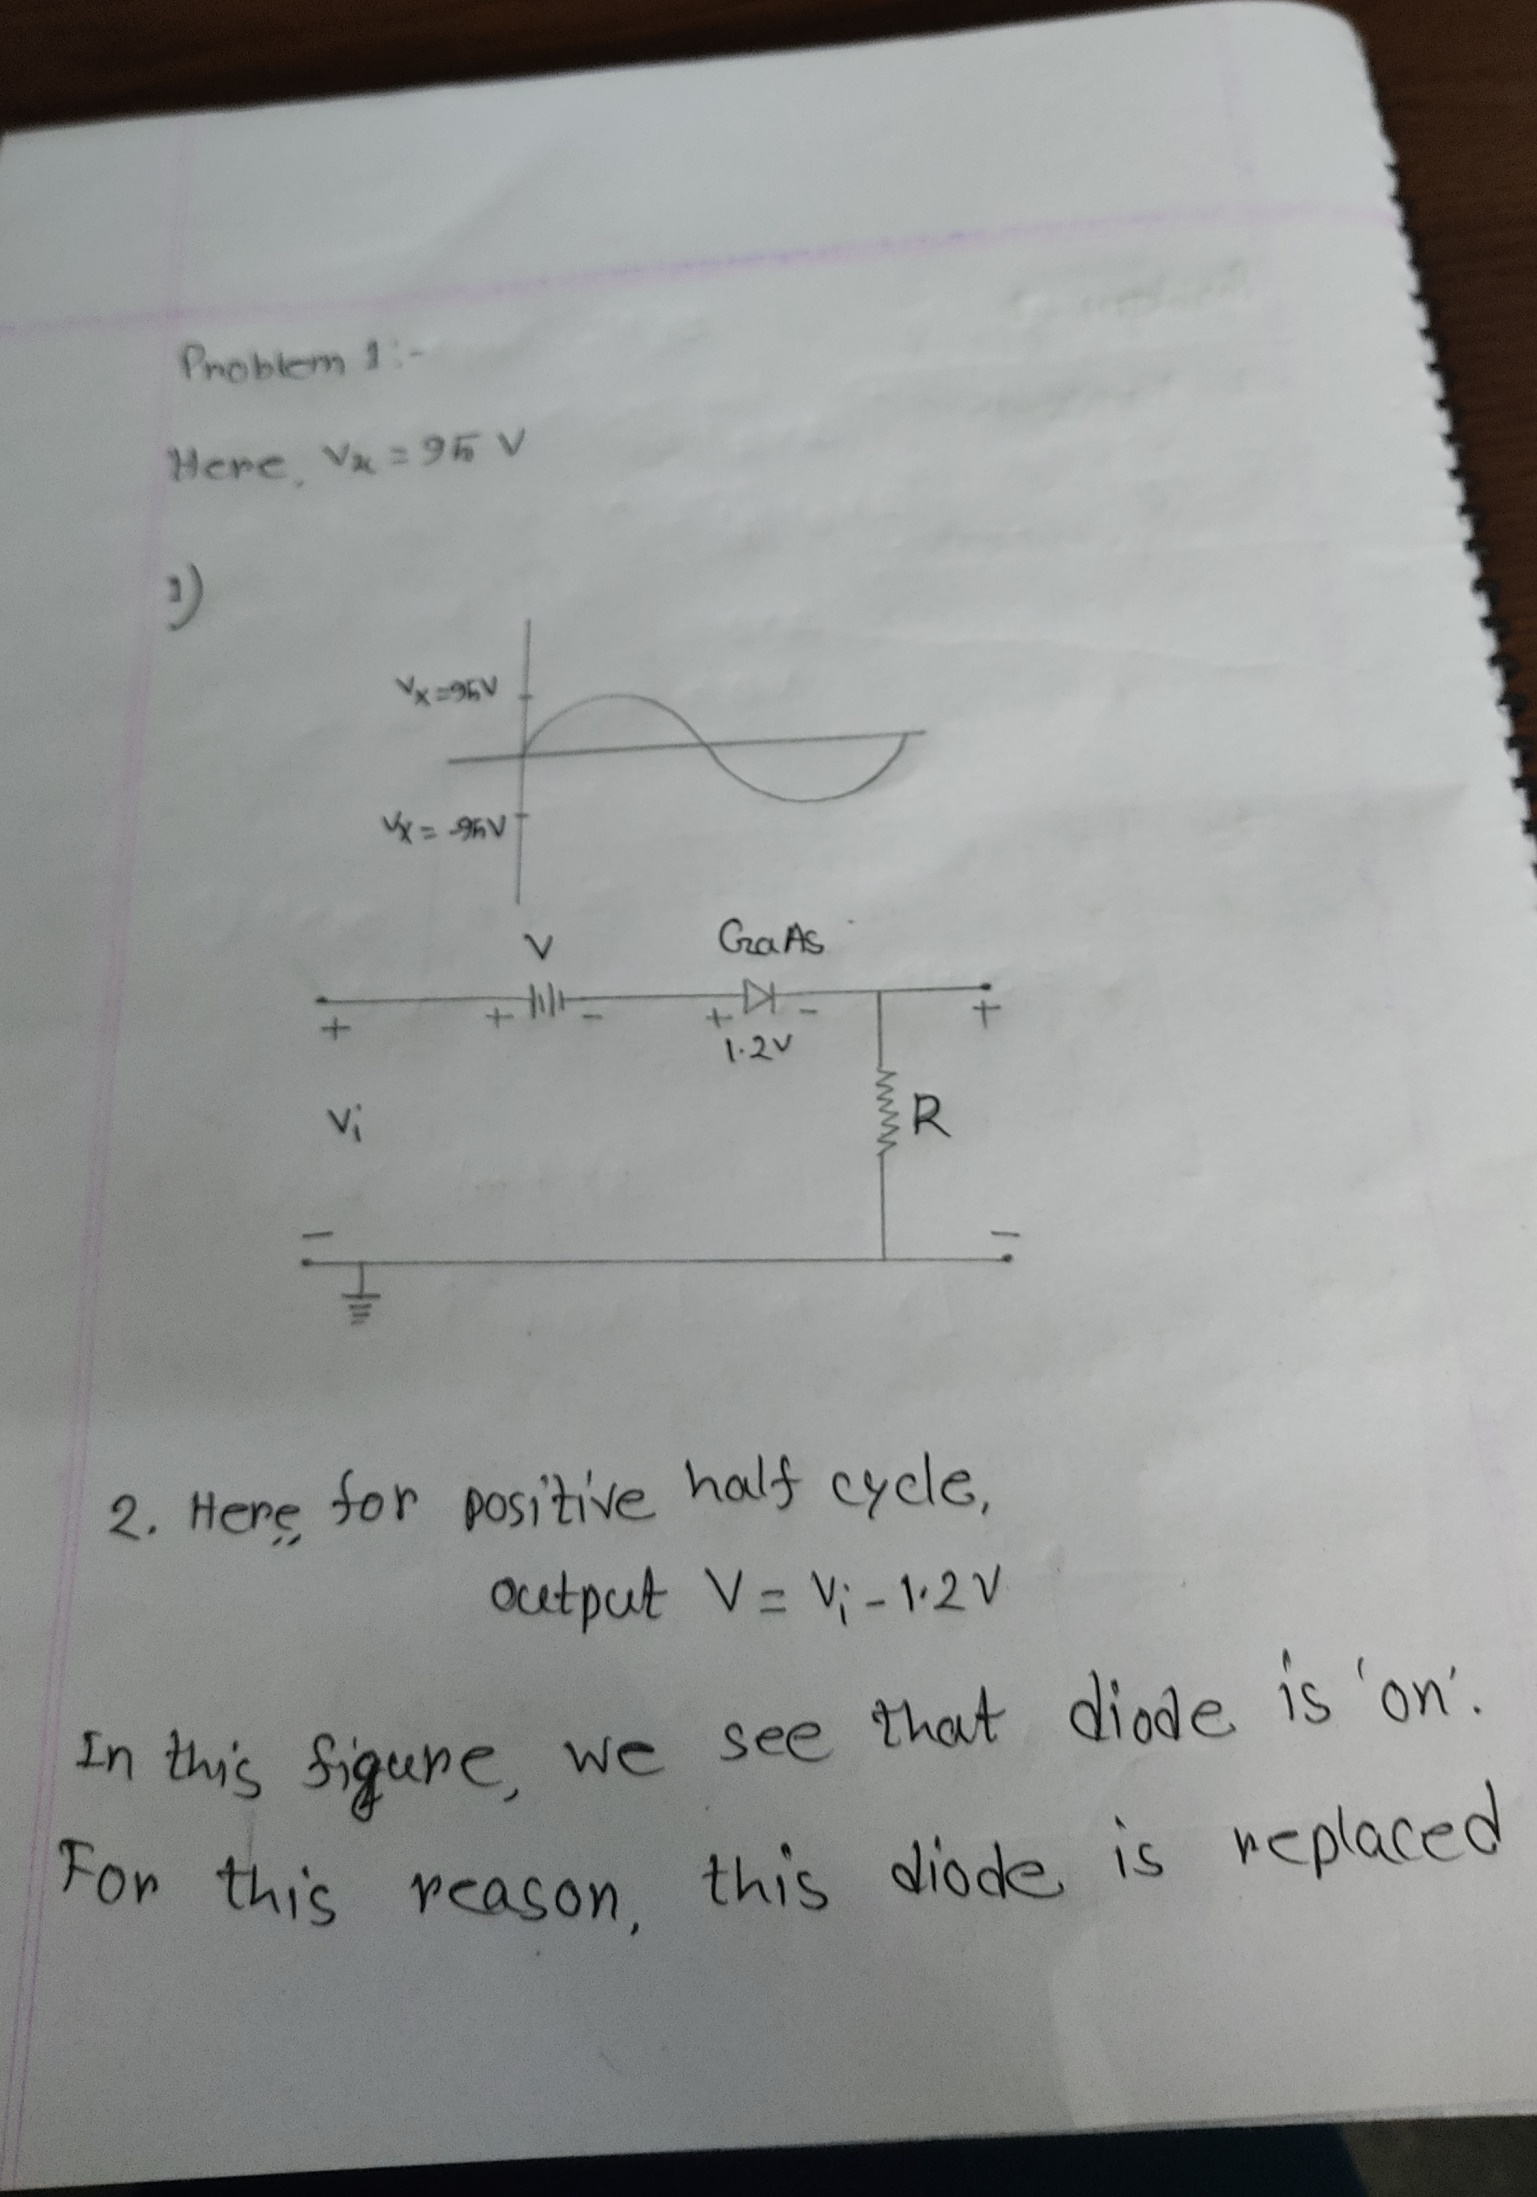 Problem 1:-
Here, Vx = 95 V
1)
Vx=95V
Vx = -95V
V
GaAs
+ - + - +
+
1.2V
Vi
R
- -
2. Here, for positive half cycle,
output V = Vi - 1.2V
In this figure, we see that diode is 'on'.
For this reason, this diode is replaced